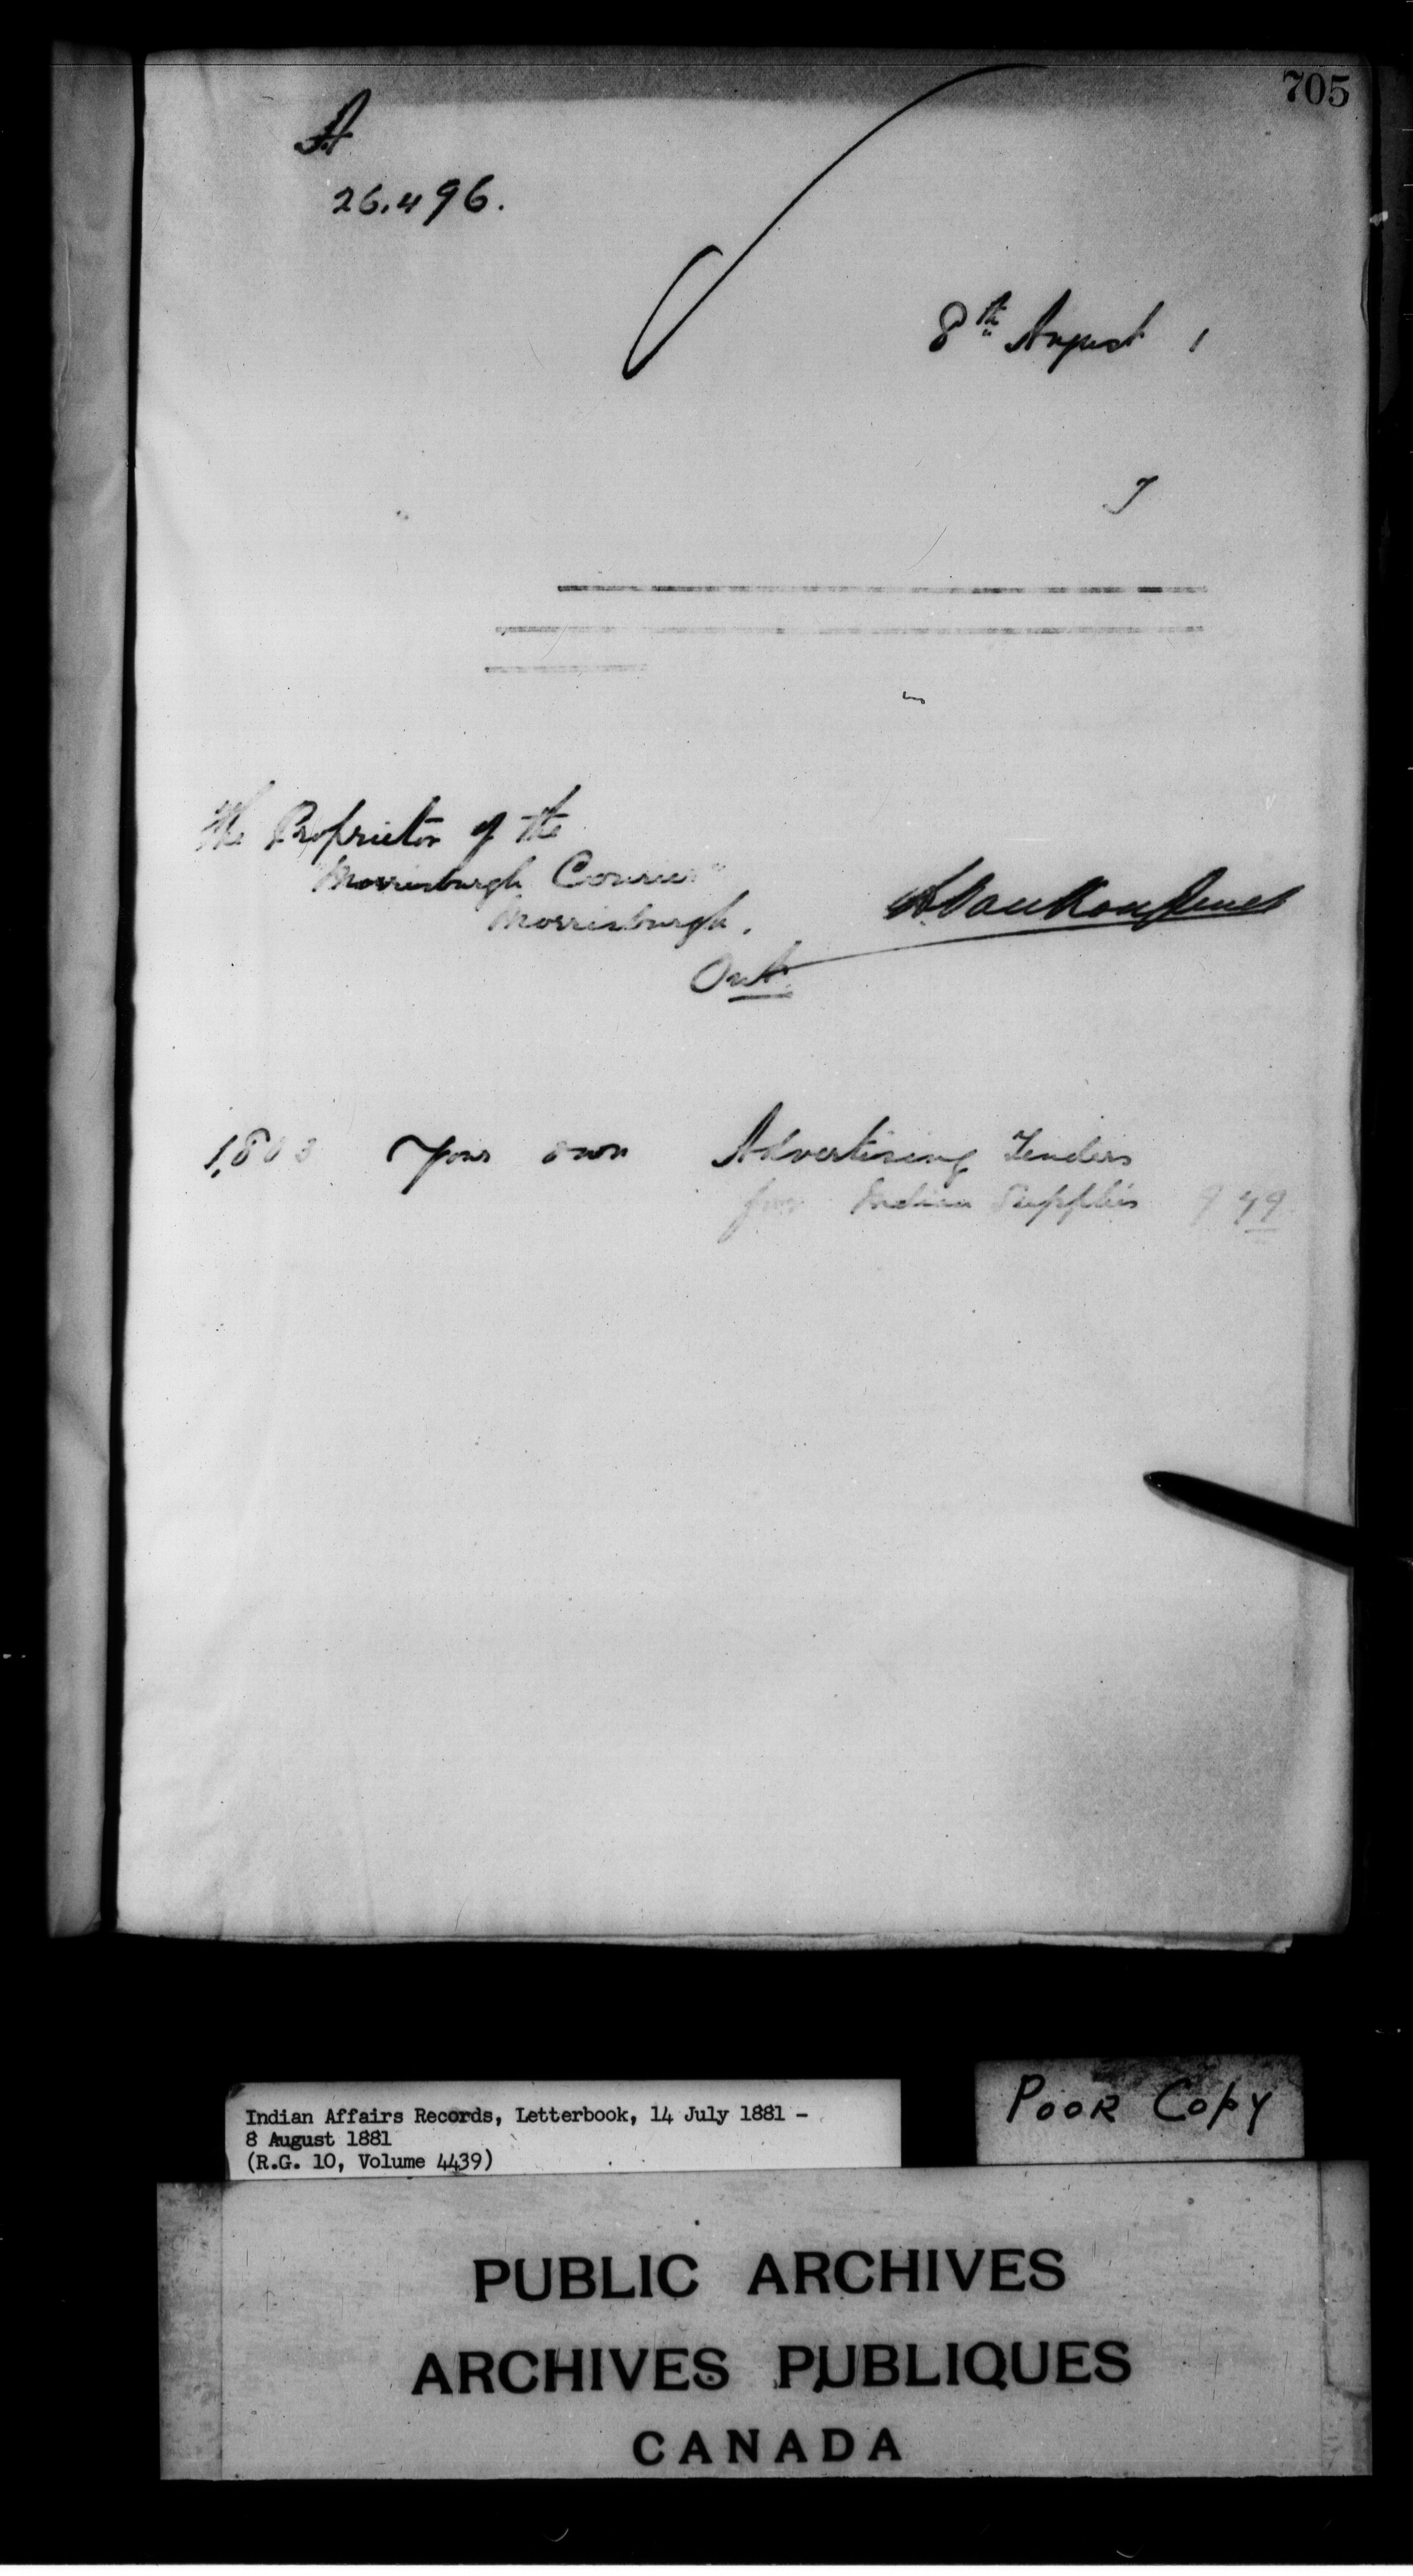 705
A
26.496.
8th August 1
I
The Proprietor of the
"Morrisburgh Courier"
Morrisburgh.
Ont.
Your own Advertising Tenders
for Indian Supplies 9 49
Indian Affairs Records, Letterbook, 14 July 1881 -
8 August 1881
(R.G. 10, Volume 4439)
POOR COPY
PUBLIC ARCHIVES
ARCHIVES PUBLIQUES
CANADA